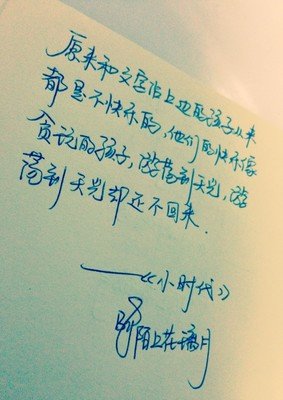 原来和文字沾上边的孩子从来
都是不快乐的,他们的快乐像
贪玩的孩子,游荡到天光,游
荡到天光却还不回来.
——《小时代》
陌上花璃月